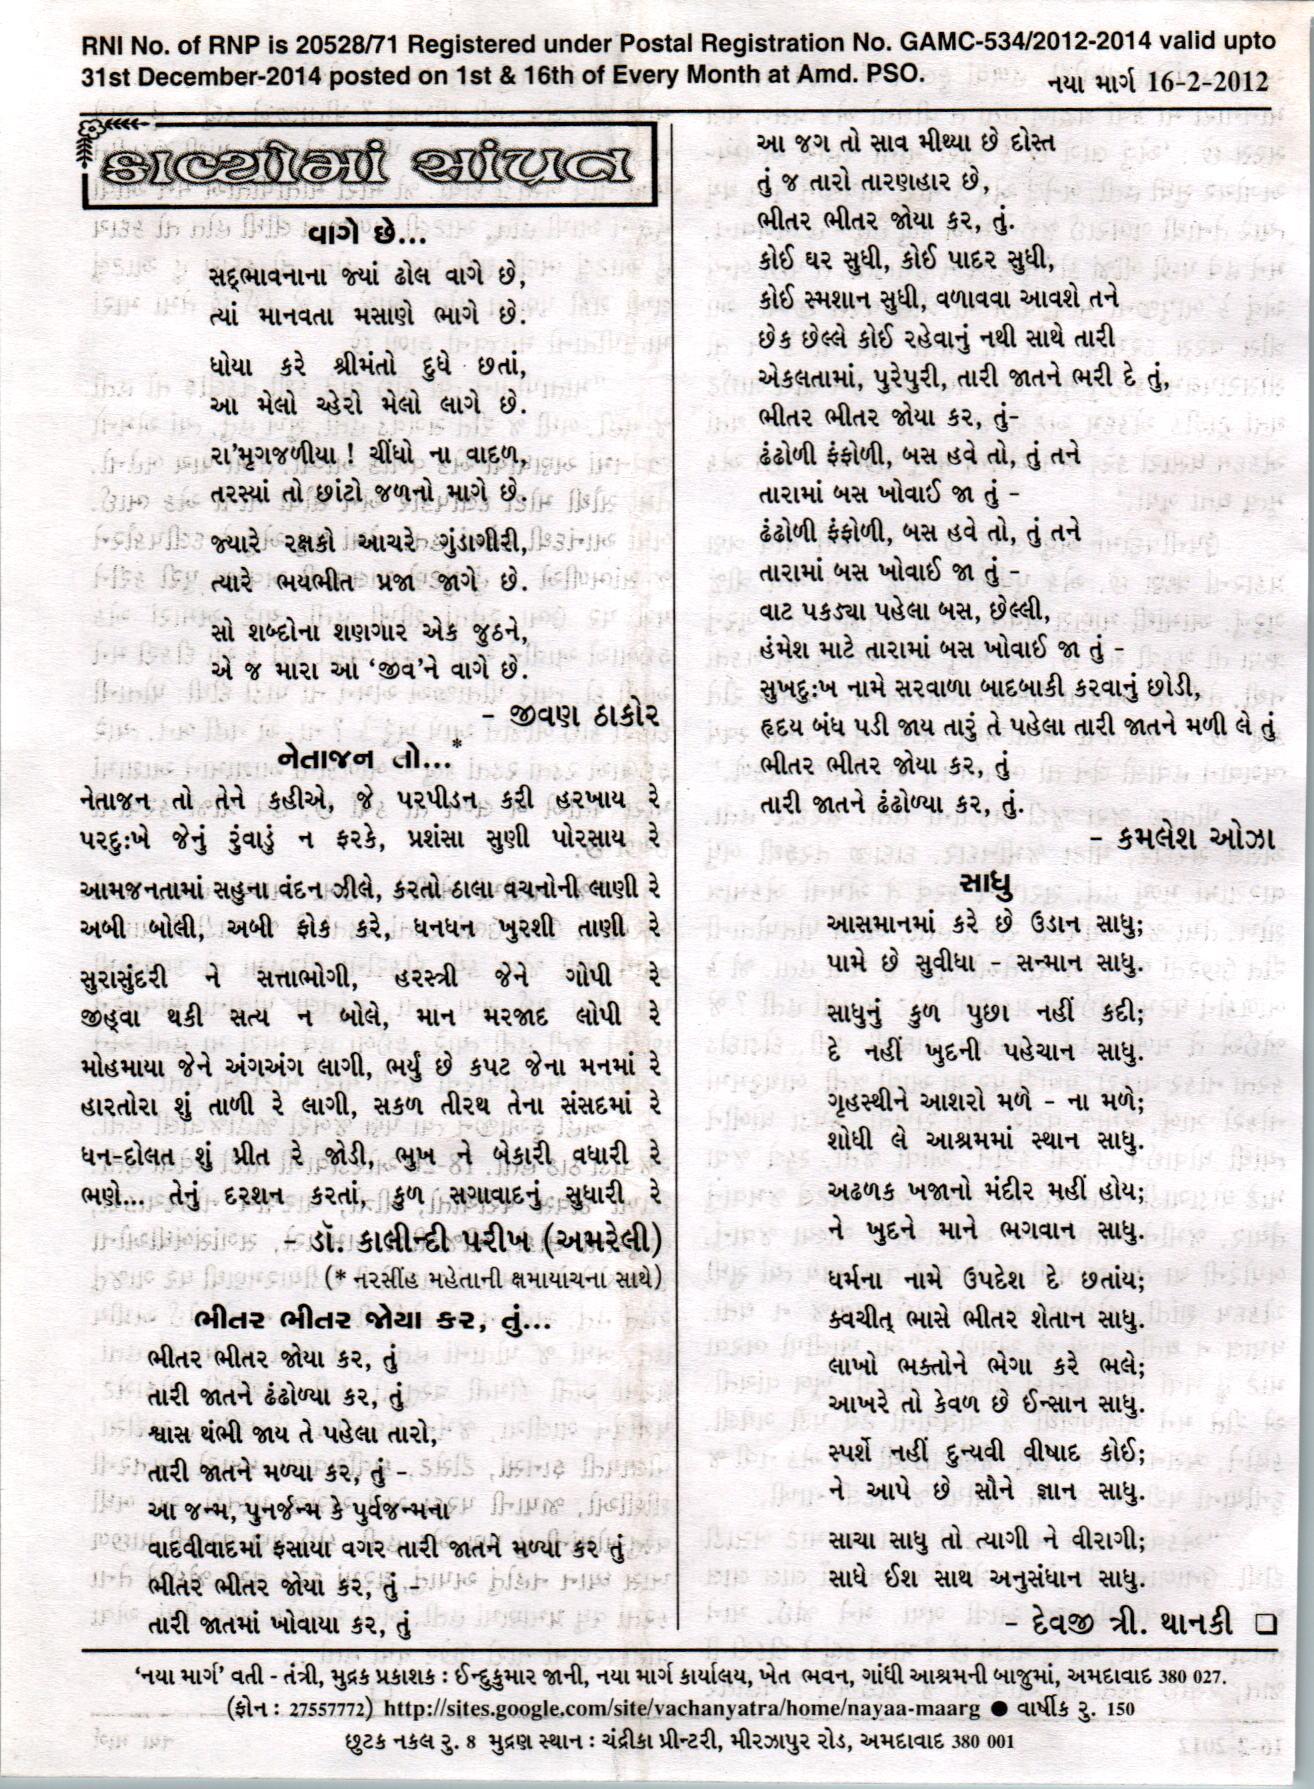 RNI No. of RNP is 20528/71 Registered under Postal Registration No. GAMC-534/2012-2014 valid upto
31st December-2014 posted on 1st & 16th of Every Month at Amd. PSO.
નયા માર્ગ 16-2-2012
કાવ્યોમાં સાંપ્રત
વાગે છે...
સદ્ભાવનાના જ્યાં ઢોલ વાગે છે,
ત્યાં માનવતા મસાણે ભાગે છે.
ધોયા કરે શ્રીમંતો દુધે છતાં,
આ મેલો ચ્હેરો મેલો લાગે છે.
રા'મૃગજળીયા ! ચીંધો ના વાદળ,
તરસ્યાં તો છાંટો જળનો માગે છે.
જ્યારે રક્ષકો આચરે ગુંડાગીરી,
ત્યારે ભયભીત પ્રજા જાગે છે.
સો શબ્દોના શણગાર એક જુઠને,
એ જ મારા આ 'જીવ'ને વાગે છે.
- જીવણ ઠાકોર
નેતાજન તો...*
નેતાજન તો તેને કહીએ, જે પરપીડન કરી હરખાય રે
પરદુઃખે જેનું રુંવાડું ન ફરકે, પ્રશંસા સુણી પોરસાય રે
આમજનતામાં સહુના વંદન ઝીલે, કરતો ઠાલા વચનોની લાણી રે
અબી બોલી, અબી ફોક કરે, ધનધન ખુરશી તાણી રે
સુરાસુંદરી ને સત્તાભોગી, હરસ્ત્રી જેને ગોપી રે
જીહ્વા થકી સત્ય ન બોલે, માન મરજાદ લોપી રે
મોહમાયા જેને અંગઅંગ લાગી, ભર્યું છે કપટ જેના મનમાં રે
હારતોરા શું તાળી રે લાગી, સકળ તીરથ તેના સંસદમાં રે
ધન-દોલત શું પ્રીત રે જોડી, ભુખ ને બેકારી વધારી રે
ભણે... તેનું દરશન કરતાં, કુળ સગાવાદનું સુધારી રે
- ડૉ. કાલીન્દી પરીખ (અમરેલી)
(* નરસીંહ મહેતાની ક્ષમાયાચના સાથે)
ભીતર ભીતર જોયા કર, તું...
ભીતર ભીતર જોયા કર, તું
તારી જાતને ઢંઢોળ્યા કર, તું
શ્વાસ થંભી જાય તે પહેલા તારો,
તારી જાતને મળ્યા કર, તું -
આ જન્મ, પુનર્જન્મ કે પુર્વજન્મના
વાદવીવાદમાં ફસાયા વગર તારી જાતને મળ્યા કર તું
ભીતર ભીતર જોયા કર, તું -
તારી જાતમાં ખોવાયા કર, તું
આ જગ તો સાવ મીથ્યા છે દોસ્ત
તું જ તારો તારણહાર છે,
ભીતર ભીતર જોયા કર, તું.
કોઈ ઘર સુધી, કોઈ પાદર સુધી,
કોઈ સ્મશાન સુધી, વળાવવા આવશે તને
છેક છેલ્લે કોઈ રહેવાનું નથી સાથે તારી
એકલતામાં, પુરેપુરી, તારી જાતને ભરી દે તું,
ભીતર ભીતર જોયા કર, તું-
ઢંઢોળી ફંફોળી, બસ હવે તો, તું તને
તારામાં બસ ખોવાઈ જા તું -
ઢંઢોળી ફંફોળી, બસ હવે તો, તું તને
તારામાં બસ ખોવાઈ જા તું -
વાટ પકડ્યા પહેલા બસ, છેલ્લી,
હંમેશ માટે તારામાં બસ ખોવાઈ જા તું -
સુખદુઃખ નામે સરવાળા બાદબાકી કરવાનું છોડી,
હૃદય બંધ પડી જાય તારું તે પહેલા તારી જાતને મળી લે તું
ભીતર ભીતર જોયા કર, તું
તારી જાતને ઢંઢોળ્યા કર, તું.
- કમલેશ ઓઝા
સાધુ
આસમાનમાં કરે છે ઉડાન સાધુ;
પામે છે સુવીધા - સન્માન સાધુ.
સાધુનું કુળ પુછા નહીં કદી;
દે નહીં ખુદની પહેચાન સાધુ.
ગૃહસ્થીને આશરો મળે - ના મળે;
શોધી લે આશ્રમમાં સ્થાન સાધુ.
અઢળક ખજાનો મંદીર મહીં હોય;
ને ખુદને માને ભગવાન સાધુ.
ધર્મના નામે ઉપદેશ દે છતાંય;
ક્વચીત્ ભાસે ભીતર શેતાન સાધુ.
લાખો ભક્તોને ભેગા કરે ભલે;
આખરે તો કેવળ છે ઈન્સાન સાધુ.
સ્પર્શે નહીં દુન્યવી વીષાદ કોઈ;
ને આપે છે સૌને જ્ઞાન સાધુ.
સાચા સાધુ તો ત્યાગી ને વીરાગી;
સાધે ઈશ સાથ અનુસંધાન સાધુ.
- દેવજી ત્રી. થાનકી ❑
'નયા માર્ગ' વતી - તંત્રી, મુદ્રક પ્રકાશક : ઈન્દુકુમાર જાની, નયા માર્ગ કાર્યાલય, ખેત ભવન, ગાંધી આશ્રમની બાજુમાં, અમદાવાદ 380 027.
(ફોન : 27557772) http://sites.google.com/site/vachanyatra/home/nayaa-maarg ● વાર્ષીક રુ. 150
છુટક નકલ રુ. 8 મુદ્રણ સ્થાન : ચંદ્રીકા પ્રીન્ટરી, મીરઝાપુર રોડ, અમદાવાદ 380 001